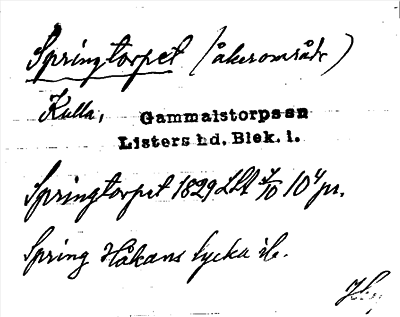 Springtorpet (åkerområde)
Kulla, Gammalstorps sn
Listers hd, Blek. l.
Springtorpet 1829 LSA 10 pr.
Spring Håkans lycka ib.